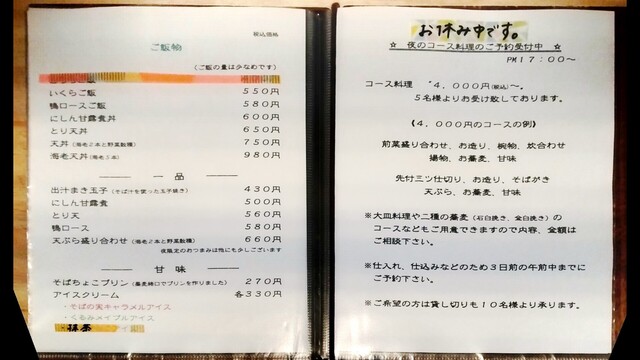 税込価格
ご飯物
(ご飯の量は少なめです)
いくらご飯 550円
鴨ロースご飯 580円
にしん甘露煮丼 600円
とり天丼 650円
天丼(海老2本と野菜数種) 750円
海老天丼(海老5本) 980円
一品
出汁まき玉子(そば汁を使った玉子焼き) 430円
にしん甘露煮 500円
とり天 560円
鴨ロース 580円
天ぷら盛り合わせ(海老2本と野菜数種) 660円
夜限定のおつまみは他にも少しございます
甘味
そばちょこプリン(蕎麦猪口でプリンを作りました) 270円
アイスクリーム 各330円
・そばの実キャラメルアイス
・くるみメイプルアイス
抹茶アイス
お休み中です。
☆ 夜のコース料理のご予約受付中 ☆
PM17:00~
コース料理 4,000円(税込)~。
5名様よりお受け致しております。
《4,000円のコースの例》
前菜盛り合わせ、お造り、椀物、炊合わせ
揚物、お蕎麦、甘味
先付三ツ仕切り、お造り、そばがき
天ぷら、お蕎麦、甘味
※大皿料理や二種の蕎麦(石臼挽き、金臼挽き)の
コースなどもご用意できますので内容、金額は
ご相談下さい。
※仕入れ、仕込みなどのため3日前の午前中までに
ご予約下さい。
※ご希望の方は貸し切りも10名様より承ります。